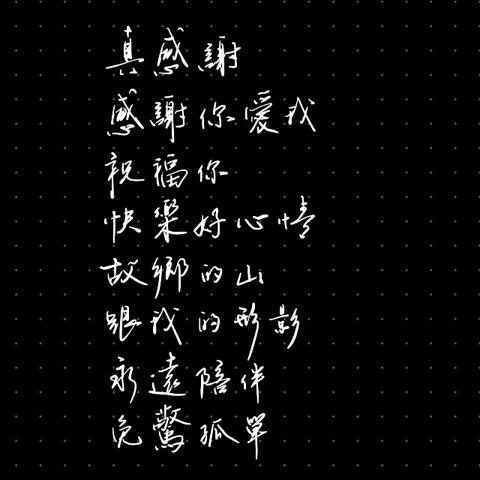 真感謝
感謝你愛我
祝福你
快樂好心情
故鄉的山
跟我的形影
永遠陪伴
免驚孤單